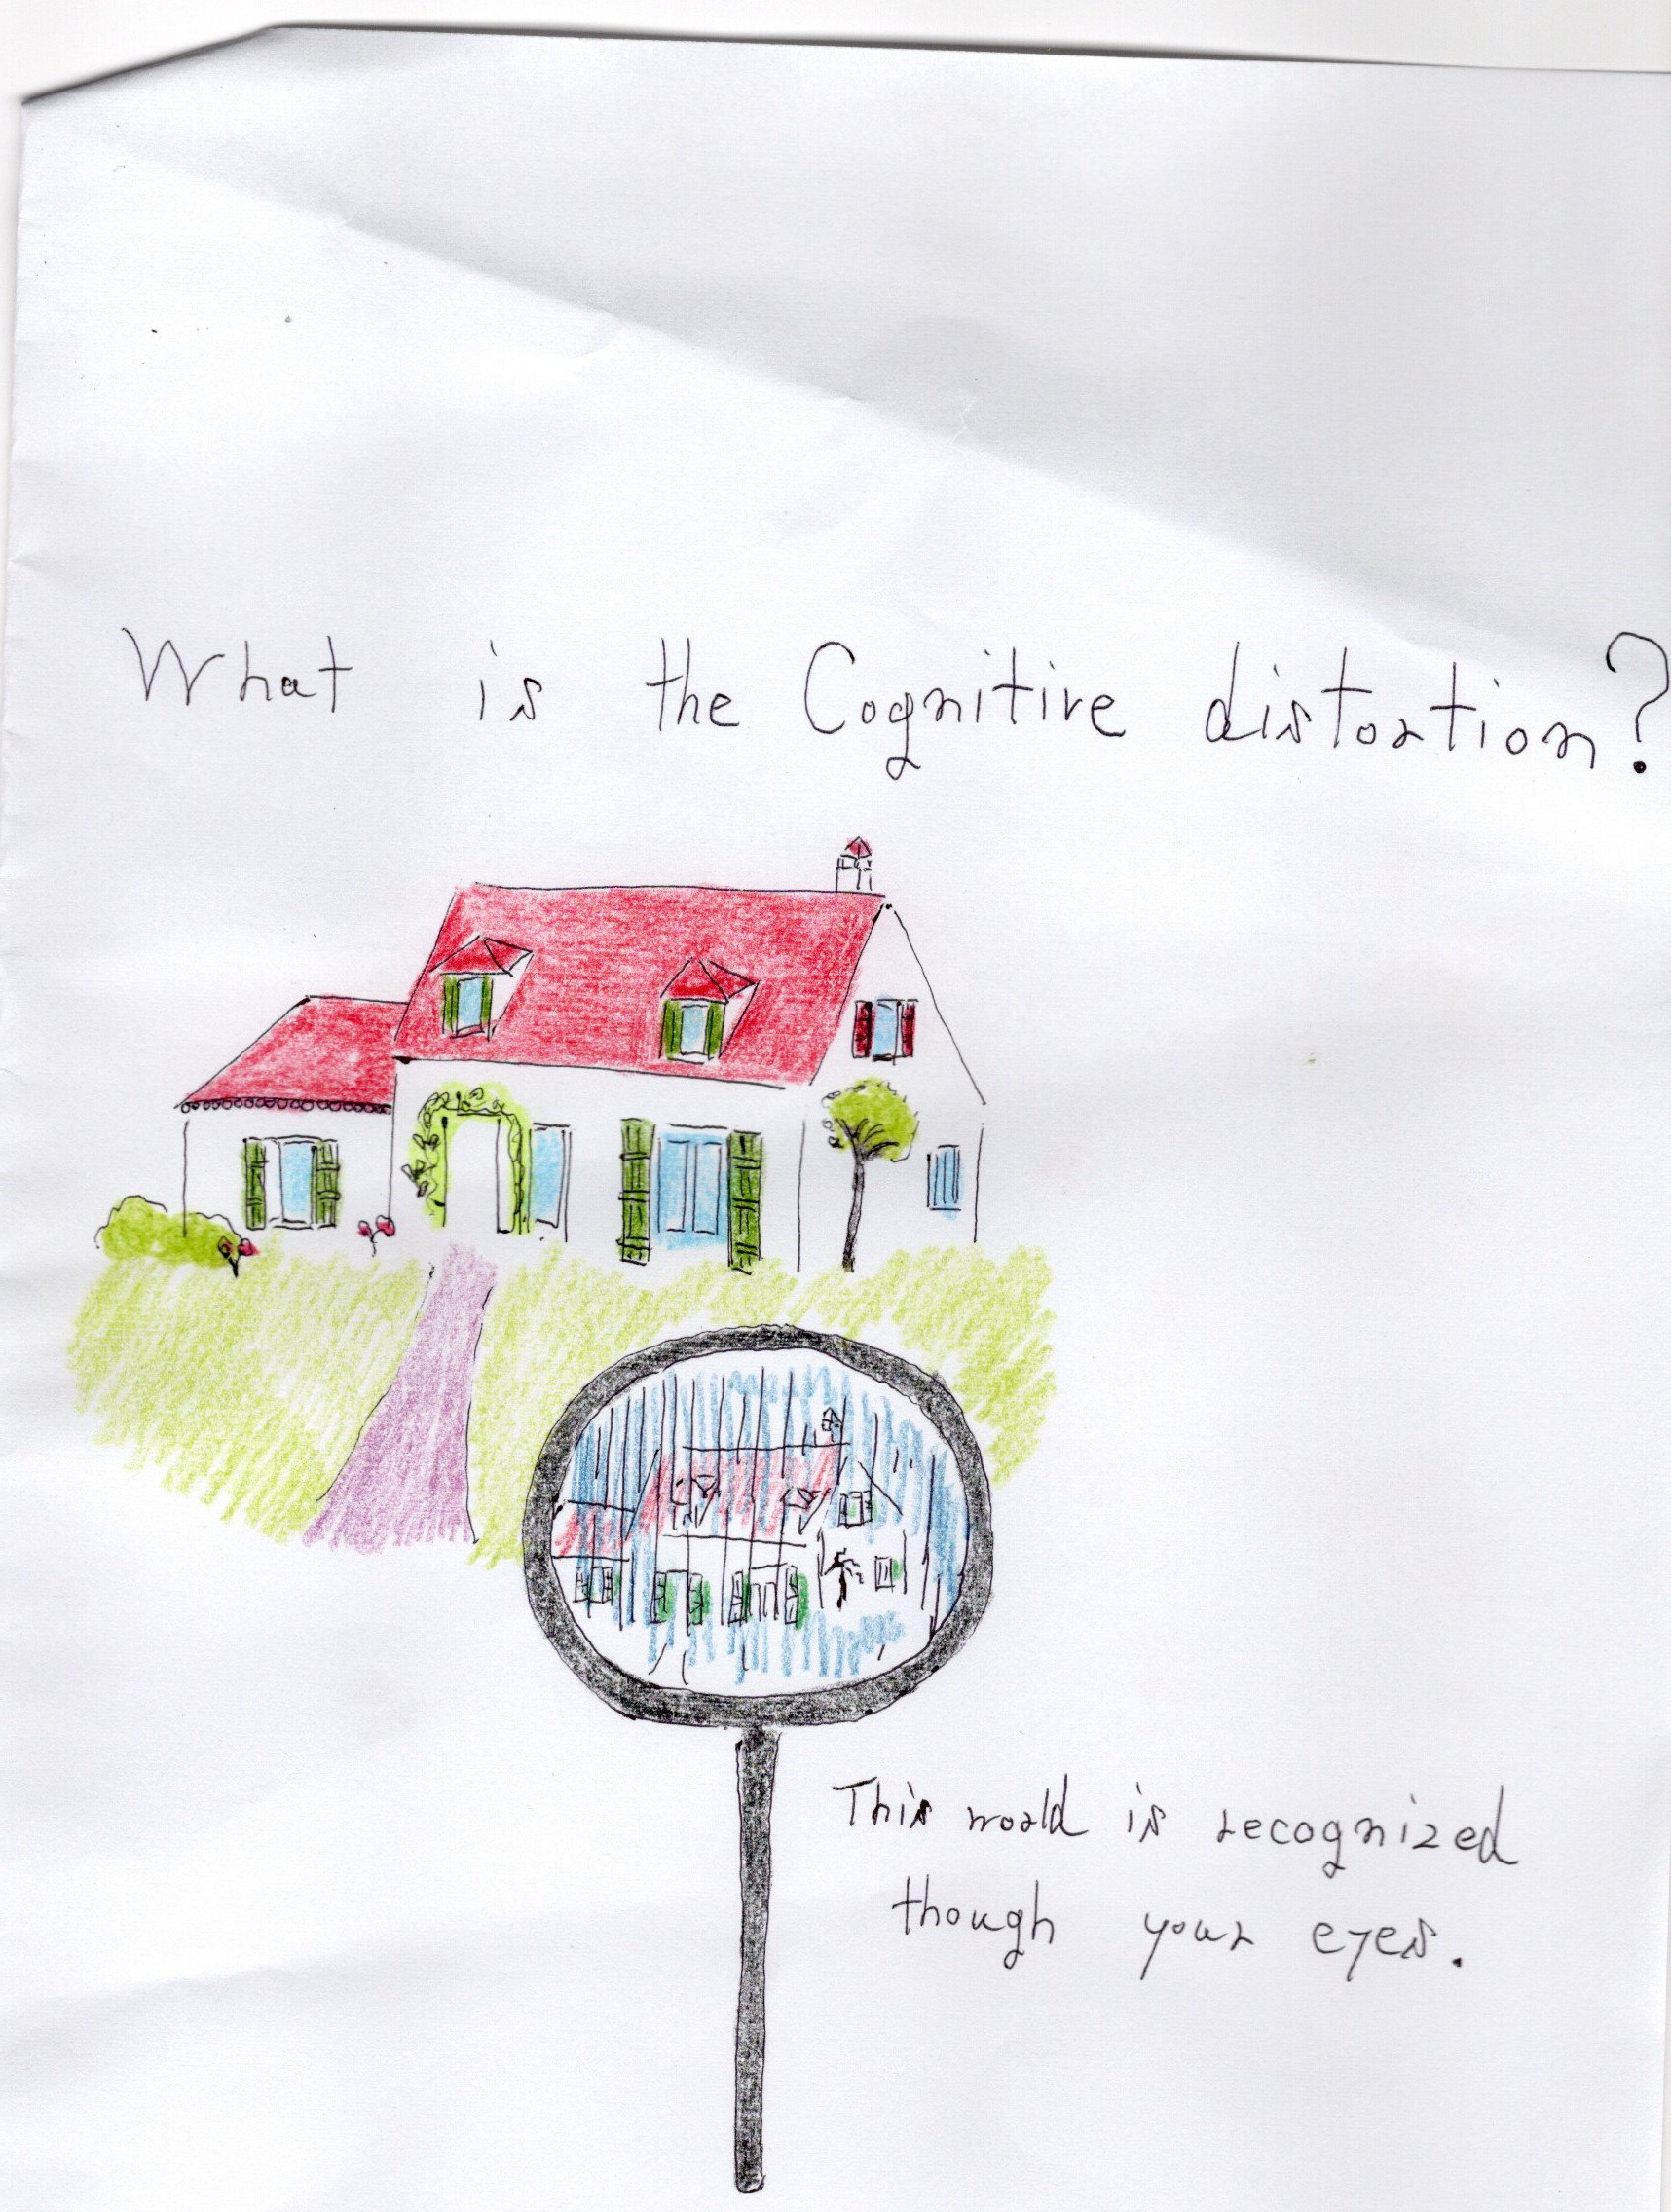 What is the Cognitive distortion?
This world is recognized
though your eyes.